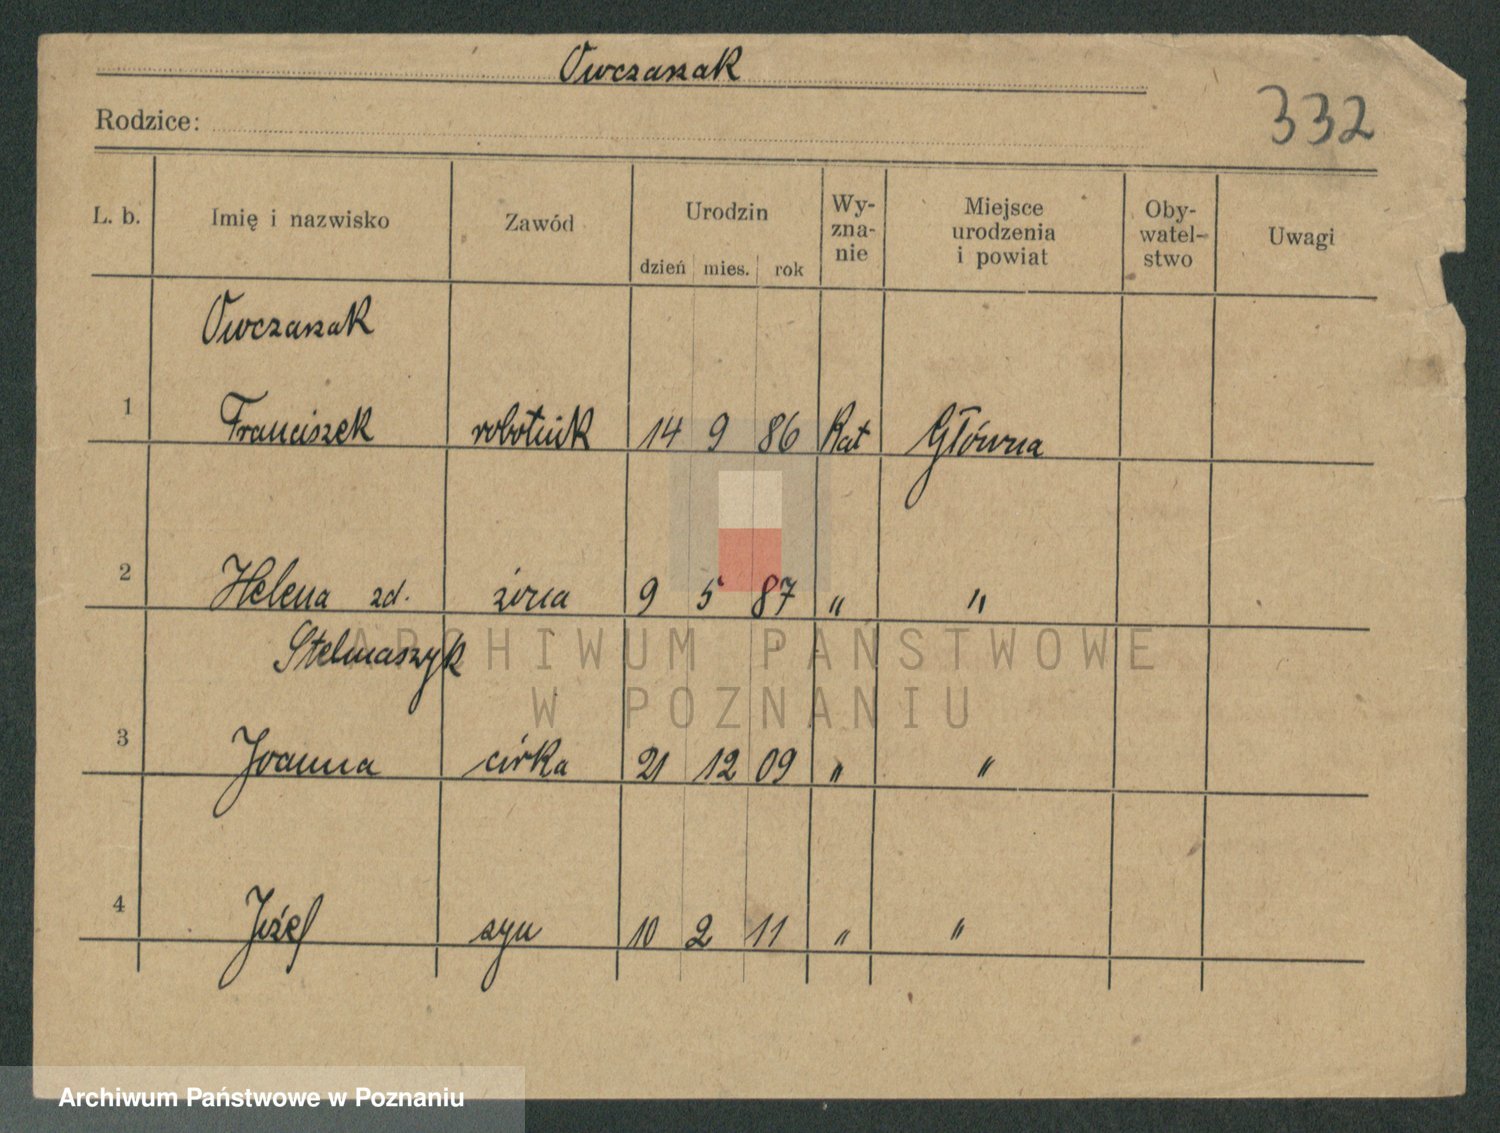 Owczarzak
332
Rodzice:
L. b. Imię i nazwisko Zawód Urodzin Wy- Miejsce Oby- Uwagi
zna- urodzenia watel-
dzień mies. rok nie i powiat stwo
Owczarzak
1 Franciszek robotnik 14 9 86 Kat Główna
2 Helena zd. żona 9 5 87 " "
Stelmaszyk
3 Joanna córka 21 12 09 " "
4 Józef syn 10 2 11 " "
ARCHIWUM PAŃSTWOWE
W POZNANIU
Archiwum Państwowe w Poznaniu